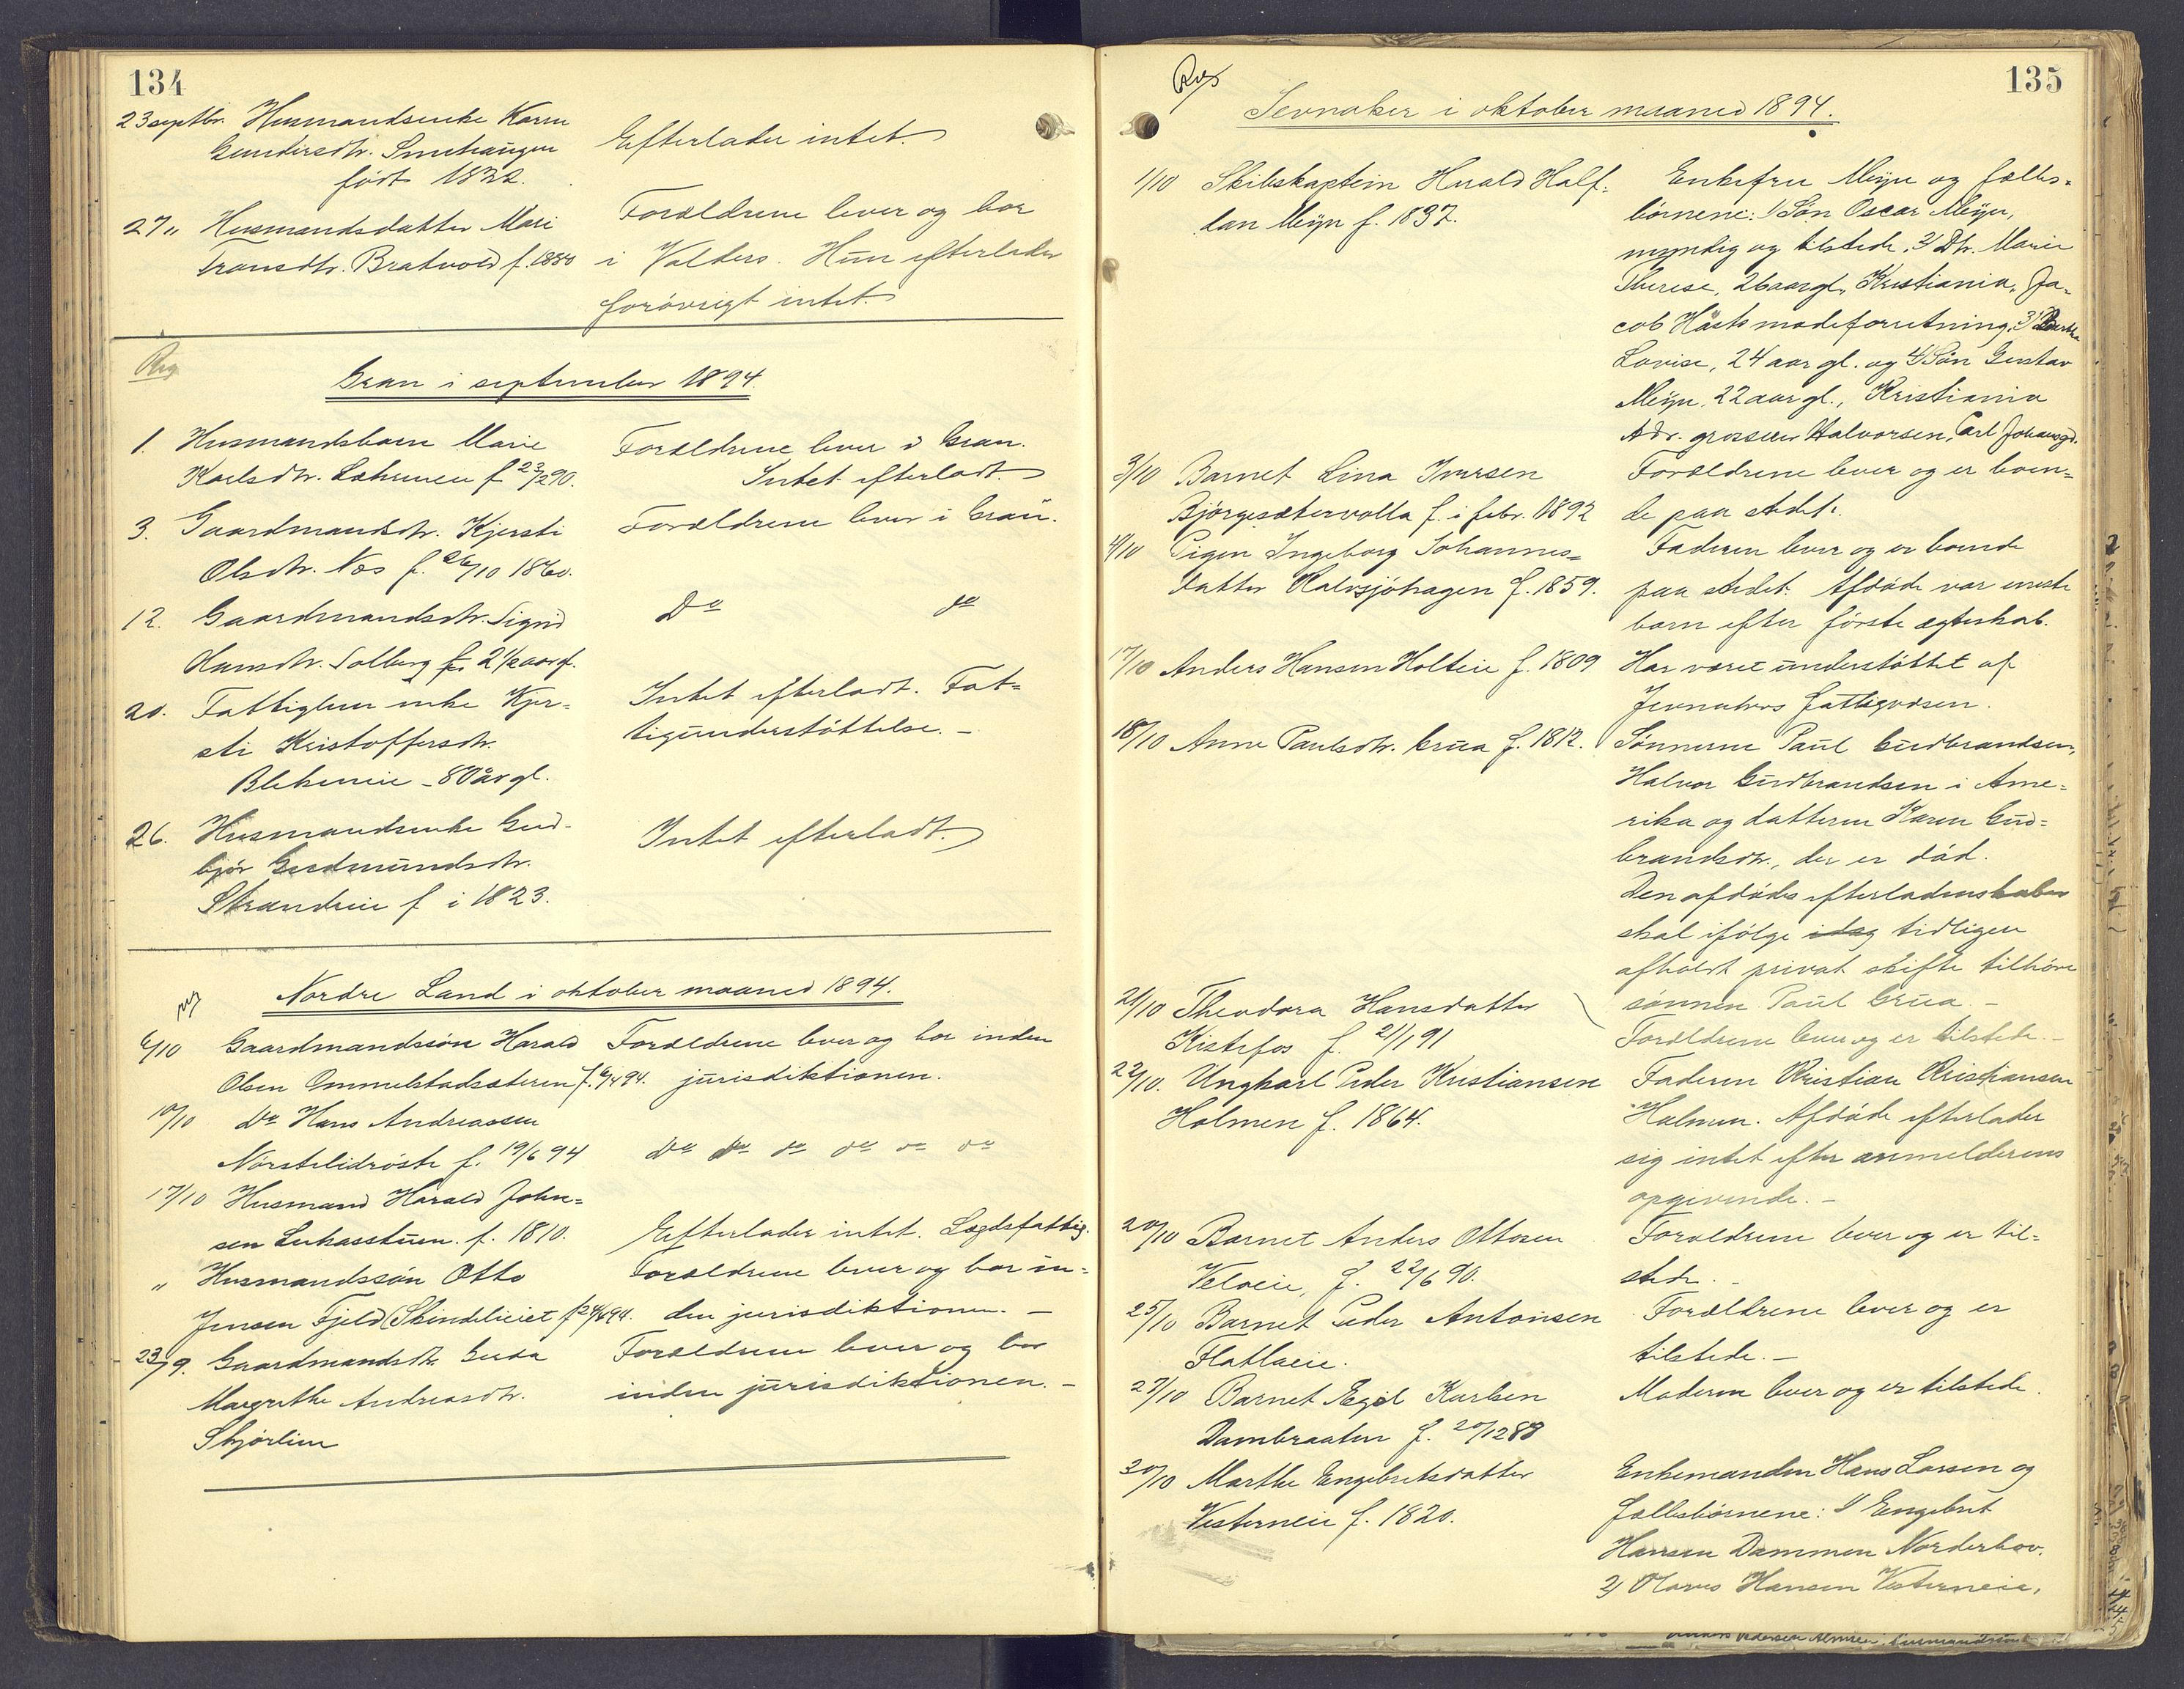 134
23 septbr. Husmandsenke Karen
Gundersdtr. Smehaugen
født 1822.
Efterlader intet.
27 " Husmandsdatter Mari
Transdtr. Bratvold f. 1880
Forældrene lever og bor
i Valders. Hun efterlader
forøvrigt intet.
Reg
Gran i september 1894.
1. Husmandsbarn Marie
Karlsdtr. f 23/2 90.
Forældrene lever i Gran.
Intet efterladt.
3. Gaardmandsdtr. Kjersti
Olsdtr. Næs f. 26/10 1860.
Forældrene lever i Gran.
12. Gaardmandsdtr. Sigrid
Hansdtr. Solberg f. 2 1/2 aar gl.
Do do
20. Fattiglem enke Kjer=
sti Kristoffersdtr.
Blekeneie - 80 år gl.
Intet efterladt. Fat=
tigunderstøttelse. -
26. Husmandsenke Gud-
bjør Gudmundsdtr.
Strandeie f i 1823.
Intet efterladt.
Reg
Nordre Land i oktober maaned 1894.
6/10 Gaardmandssøn Harald
Olsen Ommelstadsæteren f. 6/4 94.
Forældrene lever og bor inden
jurisdiktionen.
10/10 Do Hans Andreassen
f. 19/6 94
Do do do do do do
17/10 Husmand Harald John=
sen Lukasstuen. f. 1810.
Efterlader intet. Lægdsfattig.
" Husmandssøn Otto
Jensen Fjeld (Skindelieiet f 24/6 94.
Forældrene lever og bor in=
den jurisdiktionen. -
23/9. Gaardmandsdtr Gusta
Margrethe Andreasdtr.
Skjørlien
Forældrene lever og bor
inden jurisdiktionen. -
135
Reg
Jevnaker i oktober maaned 1894.
1/10 Skibskaptein Harald Half=
dan Meyn f. 1837.
Enkefru Meyn og fælles=
børnene: 1/ Søn Oscar Meyn,
myndig og tilstede, 2/ Dtr. Marie
Therese, 26 aar gl, Kristiania, Ja=
cob Håsts modeforretning, 3/
Lovise, 24 aar gl. og 4/ Søn Gustav
Meyn, 22 aar gl., Kristiania
Adr. grosserer Halvorsen, Carl Johansgd.
3/10 Barnet Lina Iversen
Bjørgesætervolla f. i febr. 1892
Forældrene lever og er boen=
de paa stedet.
4/10 Pigen Ingeborg Johannes=
datter Kalvsjøhagen f. 1859.
Faderen lever og er boende
paa stedet. Afdøde var eneste
barn efter første ægteskab.
17/10 Anders Hansen Holteie f. 1809
Har været understøttet af
Jevnakers fattigvæsen.
18/10 Anne Paulsdtr. Grua f. 1812.
Sønnerne Paul Gudbrandsen,
Halvor Gudbrandsen i Ame=
rika og datteren Karen Gud=
brandsdtr., der er død.
Den afdødes efterladenskaber
skal ifølge idag tidligere
afholdt privat skifte tilhøre
sønnen Paul Grua -
21/10 Theodora Hansdatter
Kistefos f. 21/1 91
Forældrene lever og er tilstede. -
22/10. Ungkarl Peder Kristiansen
Holmen f. 1864.
Faderen Kristian Kristiansen
Holmen. Afdøde efterlader
sig intet efter anmelderens
opgivende. -
20/10 Barnet Anders Ottosen
Veloeie, f. 22/6 90.
Forældrene lever og er til=
stede. -
25/10 Barnet Peder Antonsen
Flatlaeie.
Forældrene lever og er
tilstede. -
27/10 Barnet Egil Karlsen
Dambraaten f. 20/12 88
Moderen lever og er tilstede.
30/10 Marthe Engebretsdatter
Vesterneie f. 1820.
Enkemanden Hans Larsen og
fællesbørnene: 1/ Engebret
Hansen Dammen Norderhov.
2/ Olaves Hansen Vesterneie,